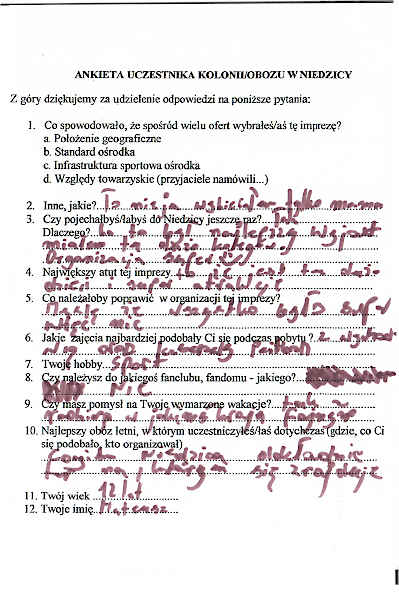 ANKIETA UCZESTNIKA KOLONII/OBOZU W NIEDZICY
Z góry dziękujemy za udzielenie odpowiedzi na poniższe pytania:
1. Co spowodowało, że spośród wielu ofert wybrałeś/aś tę imprezę?
a. Położenie geograficzne
b. Standard ośrodka
c. Infrastruktura sportowa ośrodka
d. Względy towarzyskie (przyjaciele namówili...)
2. Inne, jakie? To nie ja wybierałem tylko mama
3. Czy pojechałbyś/łabyś do Niedzicy jeszcze raz? Tak
Dlaczego? bo to był najlepszy wyjazd
miałem tu dużo
Organizacja
4. Największy atut tej imprezy to że jest tu dużo
i super atrakcji
5. Co należałoby poprawić w organizacji tej imprezy?
Myślę że wszystko było super
więc nic
6. Jakie zajęcia najbardziej podobały Ci się podczas pobytu?

7. Twoje hobby Sport
8. Czy należysz do jakiegoś fanclubu, fandomu - jakiego?
Nic
9. Czy masz pomysł na Twoje wymarzone wakacje?

10. Najlepszy obóz letni, w którym uczestniczyłeś/łaś dotychczas (gdzie, co Ci
się podobało, kto organizował)
Niedzica dokładnie
się znajduję
11. Twój wiek 12 lat
12. Twoje imię Mateusz